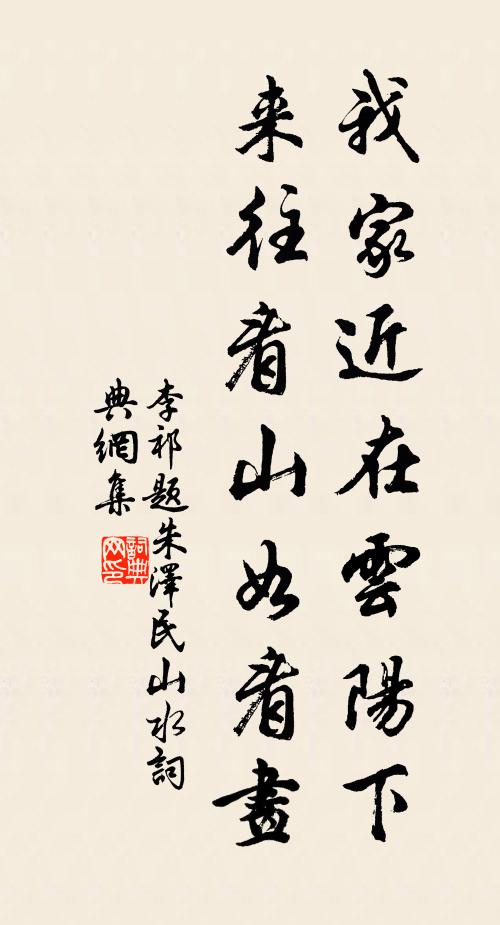 我家近在雲陽下
来往看山如看畫
李祁題朱澤民山水詞
典網集
詞典
网印